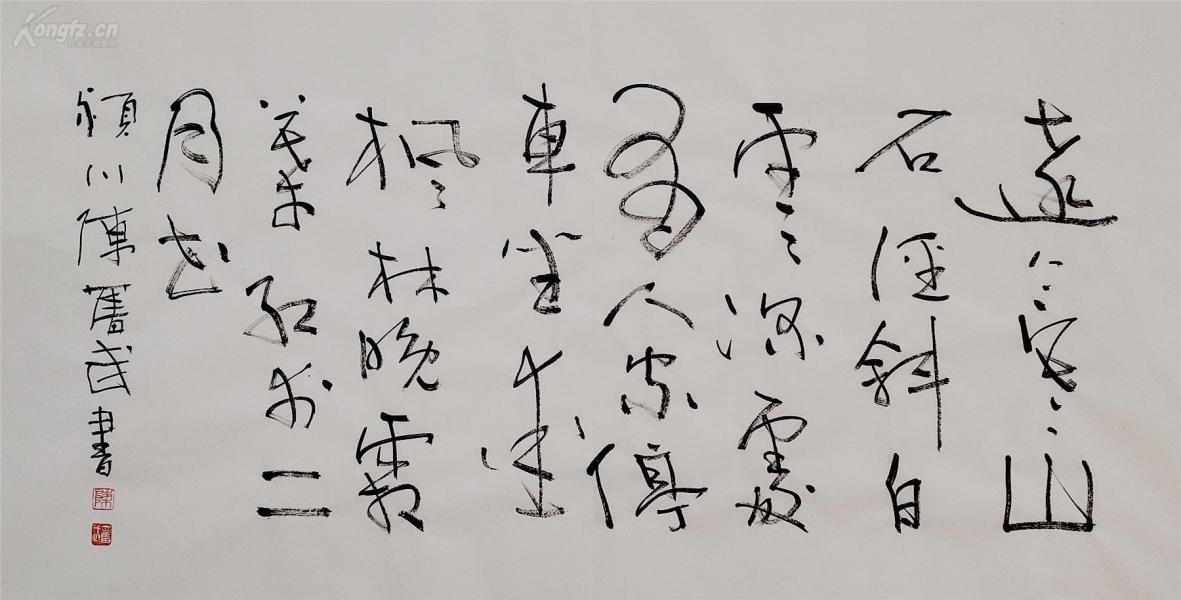 遠上寒山
石徑斜白
雲深處
有人家停
車坐愛
楓林晚霜
葉紅於二
月花
潁川陳舊武書
陳
Kongfz.cn